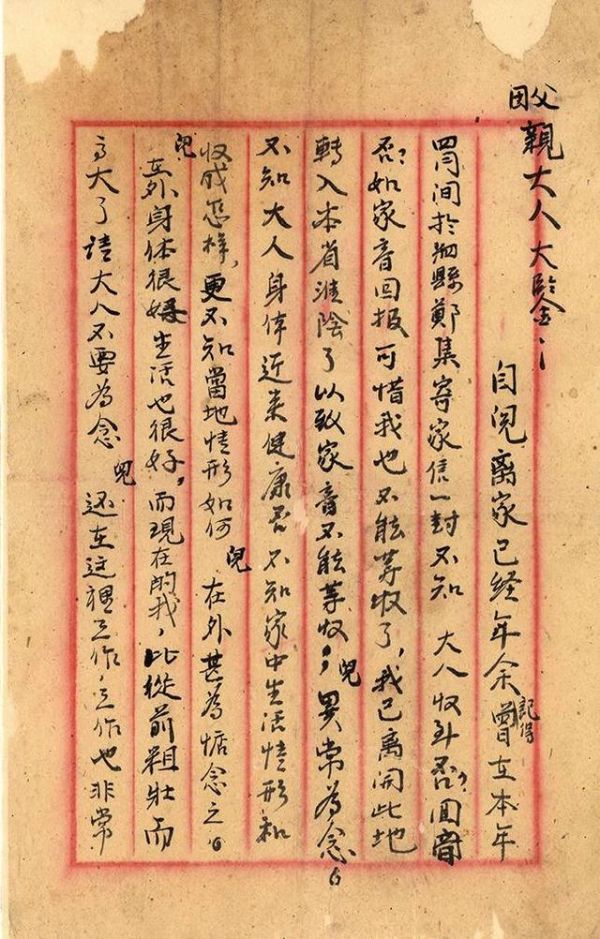 父親大人大鑒：
自兒离家已经年余記得曾在本年
四月间於泗縣鄭集寄家信一封不知 大人收到否？回音
否？如家音回报可惜我也不能等收了，我已离開此地
轉入本省淮陰了以致家音不能等收，兒異常為念。
不知大人身体近来健康否不知家中生活情形和
收成怎樣，更不知當地情形如何 兒在外甚為惦念之。
兒在外身体很好生活也很好，而現在的我，比從前粗壮而
高大了請大人不要為念 兒还在这裡工作，工作也非常